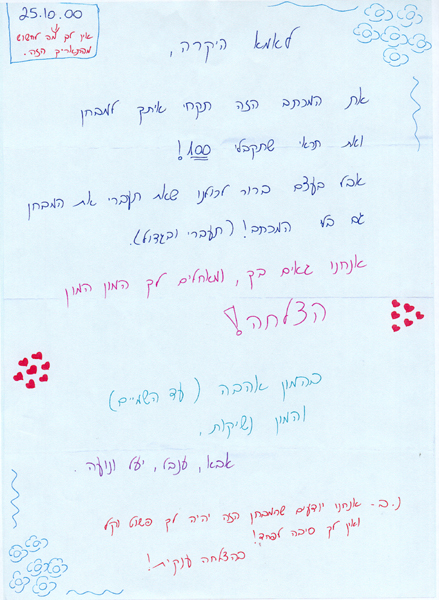 25.10.00
אין לך מה לחשוש
מהתאריך הזה.
לאמא היקרה,
את המכתב הזה תקחי איתך למבחן
ואת תראי שתקבלי 100!
אבל בעצם ברור לכולנו שאת תעברי את המבחן
גם בלי המכתב! (תעברי ובגדול).
אנחנו גאים בך, ומאחלים לך המון המון
הצלחה!
בהמון אהבה (עד השמיים)
והמון נשיקות,
אבא, ענבל, יעל ונועה.
נ.ב- אנחנו יודעים שהמבחן הזה יהיה לך פשוט וקל
ואין לך סיבה לפחד!
בהצלחה ענקית!